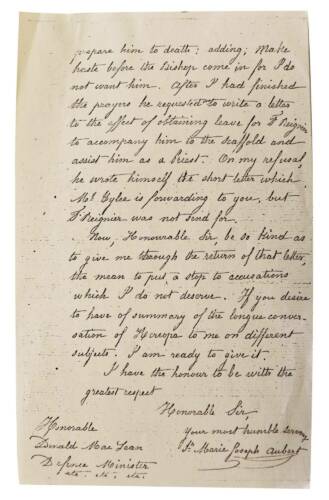 prepare him to death; adding; Make
haste before the Bishop come in for I do
not want him. After I had finished
the prayers he requested to write a letter
to the effect of obtaining leave for Fr Reignier
to accompany him to the scaffold and
assist him as a Priest. On my refusal,
he wrote himself the short letter which
Mr Gylee is forwarding to you, but
Fr Reignier was not send for.
Now, Honourable Sir, be so kind as
to give me through the return of that letter,
the mean to put a stop to accusations
which I do not deserve. If you desire
to have of summary of the longue conver-
sation of Kereopa to me on different
subjects. I am ready to give it.
I have the honour to be with the
greatest respect
Honorable Sir,
Your most humble Servant
Sr Marie Joseph Aubert
Honorable
Donald Mac Lean
Defence Minister
etc. etc. etc.